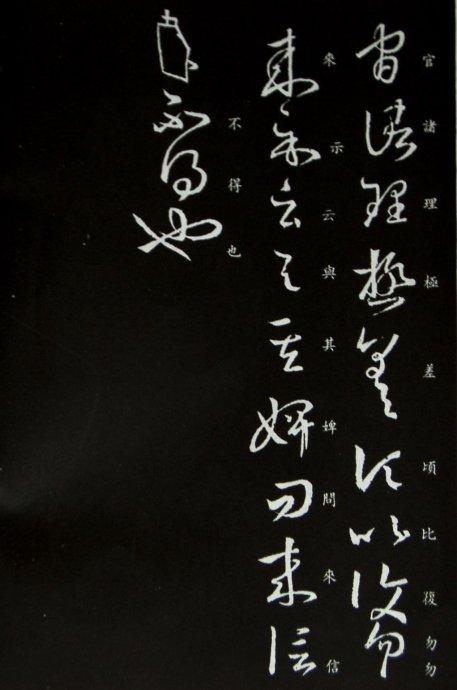 官諸理極差頃比復勿勿
來示云與其婢問來信
不得也